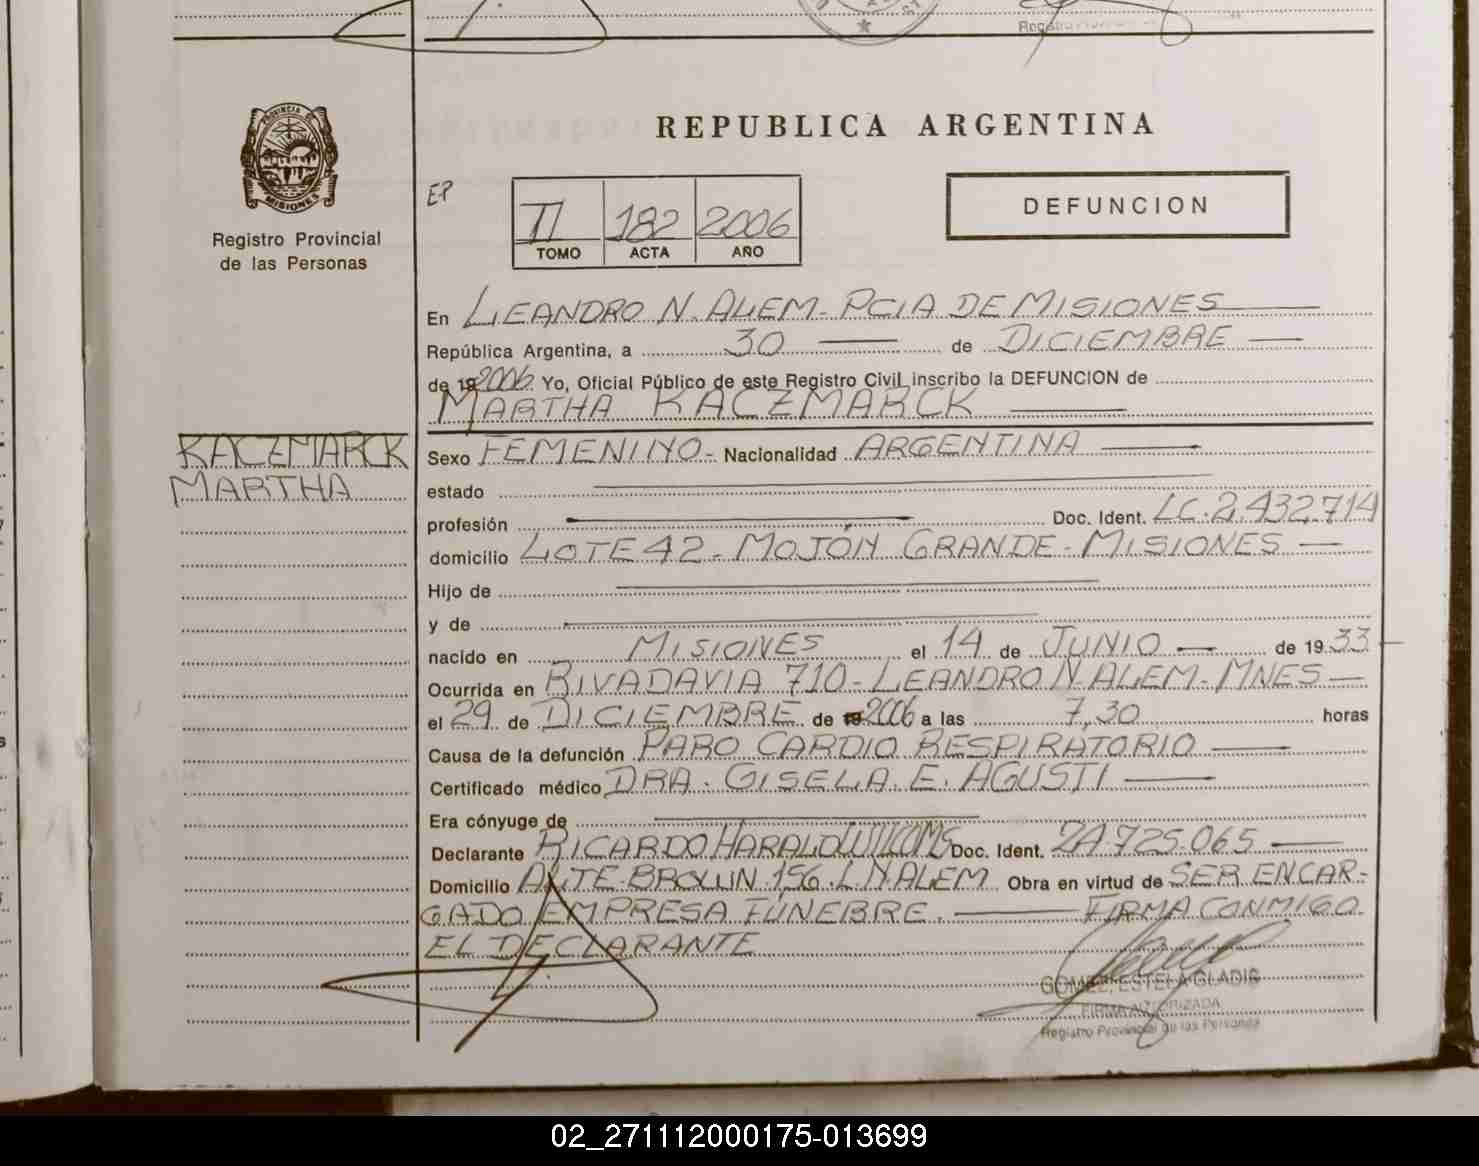 REPUBLICA ARGENTINA
PROVINCIA DE
MISIONES
Registro Provincial
de las Personas
EP
II 182 2006
TOMO ACTA AÑO
DEFUNCION
En LEANDRO N. ALEM - PCIA DE MISIONES
República Argentina, a 30 de DICIEMBRE
de 192006 Yo, Oficial Público de este Registro Civil inscribo la DEFUNCION de
MARTHA KACZMARCK
KACZMARCK
MARTHA
Sexo FEMENINO - Nacionalidad ARGENTINA
estado
profesión Doc. Ident. LC. 2.432.714
domicilio LOTE 42 - MOJÓN GRANDE - MISIONES
Hijo de
y de
nacido en MISIONES el 14 de JUNIO de 1933
Ocurrida en RIVADAVIA 710 - LEANDRO N. ALEM - MNES
el 29 de DICIEMBRE de 192006 a las 7,30 horas
Causa de la defunción PARO CARDIO RESPIRATORIO
Certificado médico DRA. GISELA. E. AGUSTI
Era cónyuge de
Declarante RICARDO HARALD Doc. Ident. 24.725.065
Domicilio ALTE BROWN 156. L N ALEM Obra en virtud de SER ENCAR-
GADO EMPRESA FÚNEBRE. FIRMA CONMIGO
EL DECLARANTE
GOMEZ, ESTELA GLADIS
FIRMA AUTORIZADA
Registro Provincial de las Personas
02_271112000175-013699